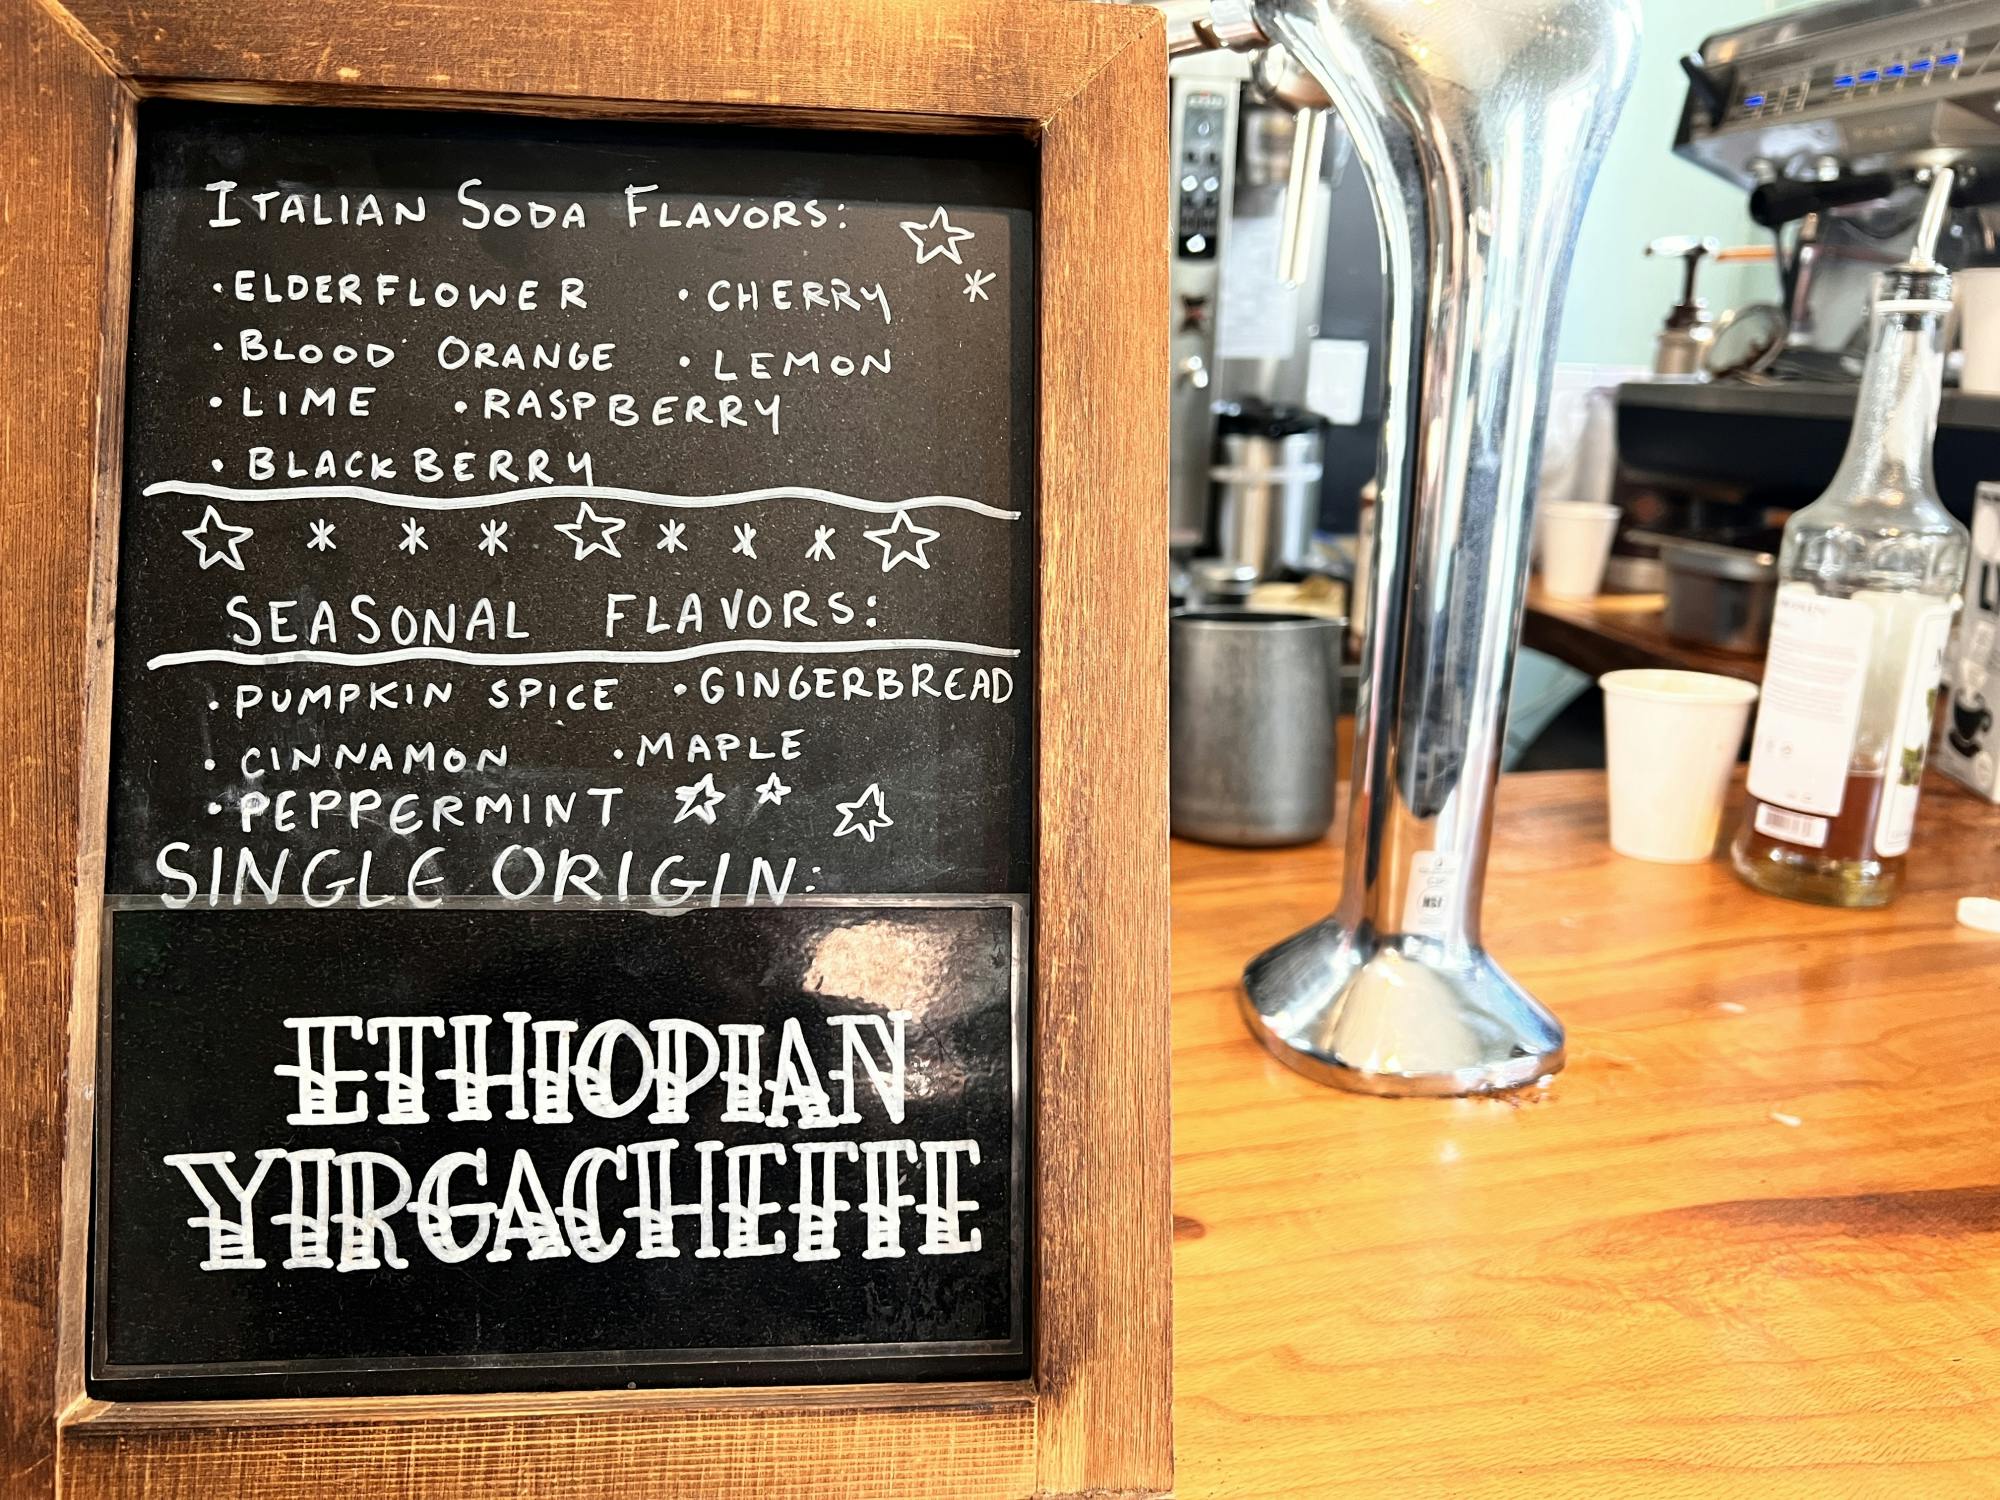 ITALIAN SODA FLAVORS:
• ELDERFLOWER • CHERRY
• BLOOD ORANGE • LEMON
• LIME • RASPBERRY
• BLACKBERRY
SEASONAL FLAVORS:
• PUMPKIN SPICE • GINGERBREAD
• CINNAMON • MAPLE
• PEPPERMINT
SINGLE ORIGIN:
ETHIOPIAN
YIRGACHEFFE
NSF